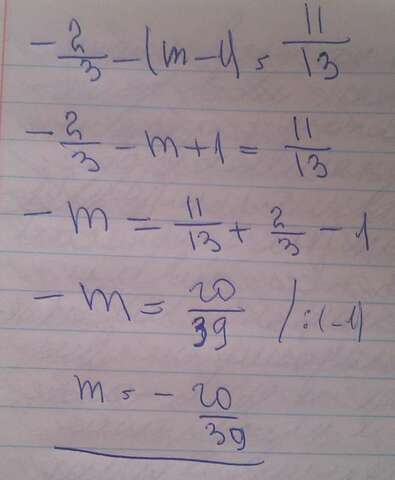 -2/3 - (m-1) = 11/13
-2/3 - m+1 = 11/13
- m = 11/13 + 2/3 - 1
- m = 20/39 /:(-1)
m = - 20/39